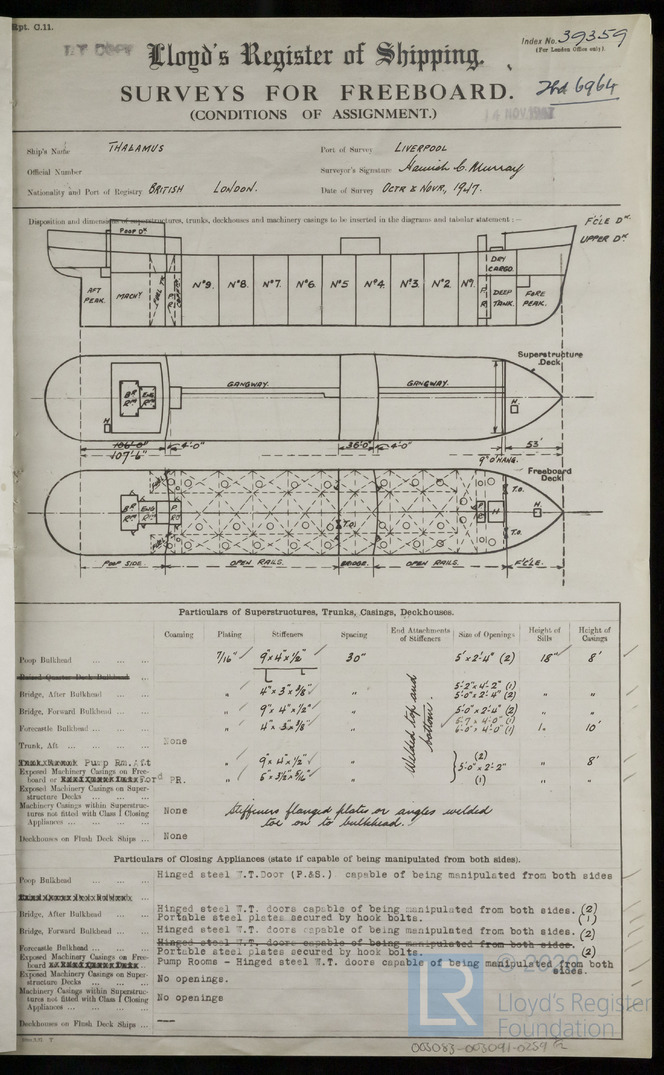 Rpt. C.11.
LT COPY
Index No. 39359
(For London Office only).
Lloyd's Register of Shipping.
SURVEYS FOR FREEBOARD.
(CONDITIONS OF ASSIGNMENT.)
6964
14 NOV 1947
Ship's Name THALAMUS
Port of Survey LIVERPOOL
Official Number
Surveyor's Signature Hamish C. Murray
Nationality and Port of Registry BRITISH LONDON.
Date of Survey OCTR & NOVR, 1947.
Disposition and dimensions of superstructures, trunks, deckhouses and machinery casings to be inserted in the diagrams and tabular statement :—
F'CLE DK.
UPPER DK.
POOP DK
AFT PEAK.
MACHY
Nº9.
Nº8.
Nº7.
Nº6.
Nº5
Nº4.
Nº3.
Nº2
Nº1.
P.R.
DRY CARGO.
DEEP TANK.
FORE PEAK.
Superstructure Deck
GANGWAY.
GANGWAY.
H
H
106'-0"
107'-6"
4'-0"
36'-0"
4'-0"
53'
9'0"HANG.
Freeboard Deck
T.O.
T.O.
T.O.
H
H
POOP SIDE.
OPEN RAILS.
BRIDGE.
OPEN RAILS.
F'CLE.
Particulars of Superstructures, Trunks, Casings, Deckhouses.
Coaming
Plating
Stiffeners
Spacing
End Attachments of Stiffeners
Size of Openings
Height of Sills
Height of Casings
Poop Bulkhead 7/16" 9"x4"x½" 30" 5'x2'-4" (2) 18" 8'
Raised Quarter Deck Bulkhead
Bridge, After Bulkhead " 4"x3"x3/8" " 5'-2"x4'-2" (1) " "
5'-0"x2'-4" (2)
Bridge, Forward Bulkhead " 9"x4"x½" " 5'-0"x2'-4" (2) " "
Forecastle Bulkhead " 4"x3"x3/8" " 6'-0"x4'-0" (1) 10'
Welded top and bottom.
Trunk, Aft None
Pump Rm. Aft " 9"x4"x½" " (2) " 8'
Exposed Machinery Casings on Freeboard or Ford PR. " " 5'-0"x2'-2" " "
(1)
Exposed Machinery Casings on Superstructure Decks
Machinery Casings within Superstructures not fitted with Class I Closing Appliances None Stiffeners flanged plates or angles welded
toe on to bulkhead.
Deckhouses on Flush Deck Ships None
Particulars of Closing Appliances (state if capable of being manipulated from both sides).
Poop Bulkhead Hinged steel W.T.Door (P.&S.) capable of being manipulated from both sides
Bridge, After Bulkhead Hinged steel W.T. doors capable of being manipulated from both sides. (2)
Portable steel plates secured by hook bolts. (1)
Bridge, Forward Bulkhead Hinged steel W.T. doors capable of being manipulated from both sides. (2)
Forecastle Bulkhead Hinged steel W.T. doors capable of being manipulated from both sides.
Portable steel plates secured by hook bolts. (2)
Exposed Machinery Casings on Freeboard Pump Rooms - Hinged steel W.T. doors capable of being manipulated from both sides.
Exposed Machinery Casings on Superstructure Decks No openings.
Machinery Casings within Superstructures not fitted with Class I Closing Appliances No openings
Deckhouses on Flush Deck Ships —
LR
Lloyd's Register
Foundation
003083-003091-0259